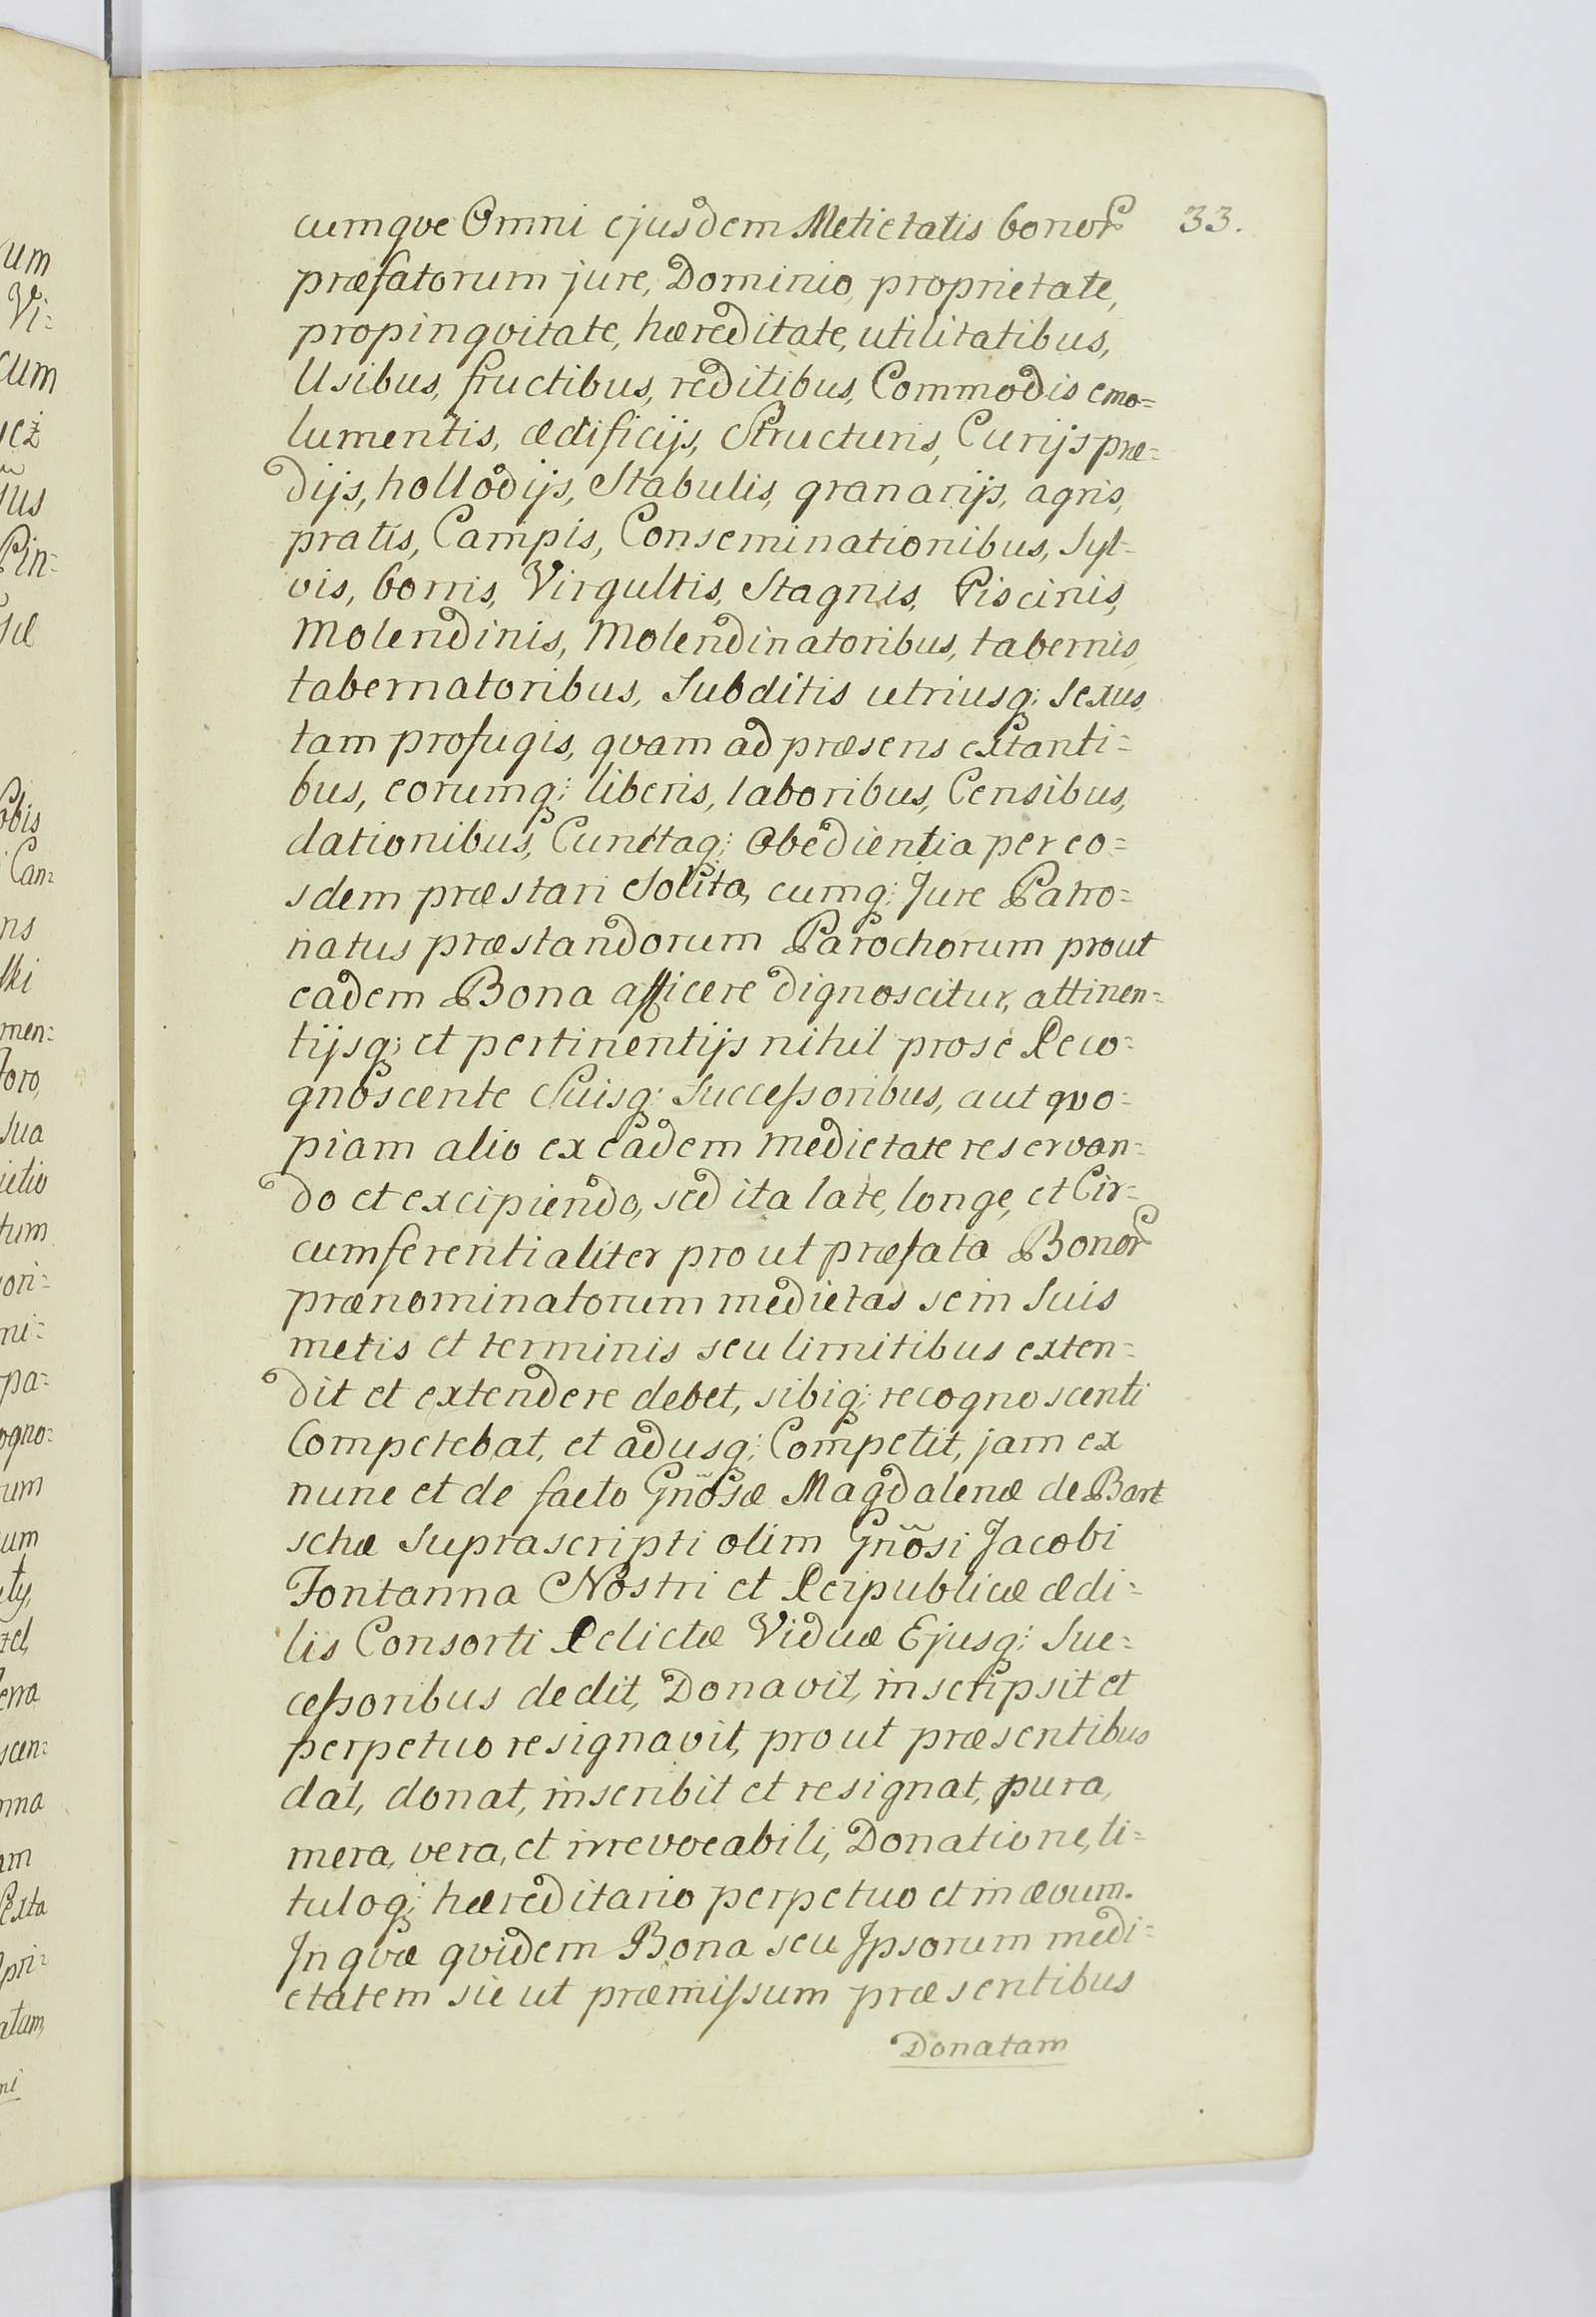 cumqve Omni ejusdem Metietatis bonor 33.
præfatorum jure, Dominio, proprietate,
propinqvitate, hæreditate, utilitatibus,
Usibus, fructibus, reditibus, Commodis emo=
lumentis, ædificijs, Structuris, Curijs præ=
dijs, hollodijs, Stabulis, granarijs, agris,
pratis, Campis, Conseminationibus, Syl=
vis, borris, Virgultis, Stagnis, Piscinis,
Molendinis, Molendinatoribus, tabernis,
tabernatoribus, Subditis utriusq; sexus,
tam profugis, qvam ad præsens extanti=
bus, eorumq; liberis, laboribus, Censibus,
dationibus, Cunctaq; Obedientia per eo=
sdem præstari Solita, cumq; Jure Patro=
natus præstandorum Parochorum prout
eadem Bona afficere dignoscitur, attinen=
tijsq; et pertinentijs nihil pro se Reco=
gnoscente Suisq; Successoribus, aut qvo=
piam alio ex eadem medietate reservan=
do et excipiendo, sed ita late, longe, et Cir=
cumferentialiter prout præfata Bonor
prænominatorum medietas se in Suis
metis et terminis seu limitibus exten=
dit et extendere debet, sibiq; recognoscenti
Competebat, et adusq; Competit, jam ex
nunc et de facto Gñosæ Magdalenæ de Bart
schæ Suprascripti olim Gñosi Jacobi
Fontanna Nostri et Reipublicæ ædi=
lis Consorti Relictæ Viduæ Ejusq; Suc=
cessoribus dedit, Donavit, inscripsit et
perpetuo resignavit, prout præsentibus
dat, donat, inscribit et resignat, pura,
mera, vera, et irrevocabili, Donatione, ti=
tuloq; hæreditario perpetuo et in ævum.
In qvæ qvidem Bona seu Ipsorum medi=
etatem sic ut præmissum præsentibus
Donatam